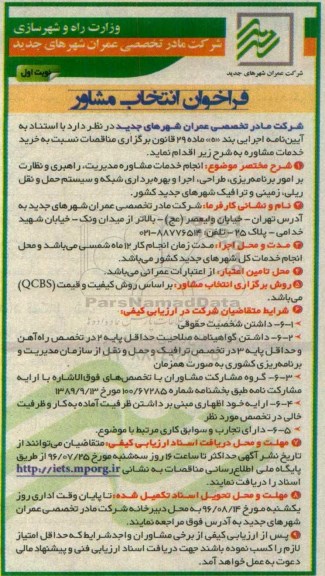 وزارت راه و شهرسازی
شرکت مادر تخصصی عمران شهرهای جدید
شرکت عمران شهرهای جدید
نوبت اول
فراخوان انتخاب مشاور
شرکت مـادر تخصصـی عمران شـهرهای جدیـد در نظر دارد با استناد به
آیین‌نامـه اجرایی بند «ه» ماده ۲۹ قانون برگزاری مناقصات نسبت به خرید
خدمات مشاوره به شرح زیر اقدام نماید.
۱ شـرح مختصر موضوع: انجام خدمات مشاوره مدیریت، راهبری و نظارت
بر امور برنامه‌ریزی، طراحی، اجرا و بهره‌برداری شبکه و سیستم حمل و نقل
ریلی، زمینی و ترافیک شهرهای جدید کشور.
۲ نام و نشانی کارفرما: شرکت مادر تخصصی عمران شهرهای جدید به
آدرس تهران - خیابان ولیعصر (عج) - بالاتر از میدان ونک - خیابان شهید
خدامی - پلاک ۲۵ - تلفن: ۸۸۷۷۶۵۱۴-۰۲۱
۳ مدت و محل اجرا: مدت زمان انجام کار ۱۲ ماه شمسی می‌باشد و محل
انجام خدمات کل شهرهای جدید کشور می‌باشد.
۴ محل تامین اعتبار: از اعتبارات عمرانی می‌باشد.
۵ روش برگزاری انتخاب مشاور: بر اساس روش کیفیت و قیمت (QCBS)
می‌باشد.
۶ شرایط متقاضیان شرکت در ارزیابی کیفی:
۶-۱- داشتن شخصیت حقوقی
۶-۲- داشتن گواهینامه صلاحیت حداقل پایه ۲ در تخصص راه‌آهن
و حداقل پایه ۳ در تخصص ترافیک و حمل و نقل از سازمان مدیریت و
برنامه‌ریزی کشوری به صورت همزمان
۶-۳- گروه مشارکت مشاوران با تخصص‌های فوق‌الاشاره با ارایه
مشارکت نامه طبق بخشنامه شماره ۱۰۰/۶۷۲۸۵ مورخ ۱۳۸۹/۹/۱۳
۶-۴- ارایه خود اظهاری مبنی بر داشتن ظرفیت آماده به کار و ظرفیت
خالی در تخصص مورد نظر
۶-۵- دارای تجارب و سوابق کاری مرتبط با موضوع.
۷ مهلت و محل دریافت اسناد ارزیابی کیفی: متقاضیان می‌توانند از
تاریخ نشر آگهی حداکثر تا ساعت ۱۶ روز سه‌شنبه مورخ ۹۶/۰۷/۲۵ از طریق
پایگاه ملی اطلاع‌رسانی مناقصات به نشانی http://iets.mporg.ir
اسناد را دریافت نمایند.
۸ مهلت و محل تحویل اسناد تکمیل شده: تا پایان وقت اداری روز
یکشنبه مورخ ۹۶/۰۸/۱۴ به محل دبیرخانه شرکت مادر تخصصی عمران
شهرهای جدید به آدرس فوق مراجعه نمایند.
۹ پس از ارزیابی کیفی از برخی مشاوران واجد شرایط که حداقل امتیاز
لازم را کسب نموده باشند جهت دریافت اسناد ارزیابی فنی و پیشنهاد مالی
دعوت به عمل خواهد آمد.
ParsNamadData